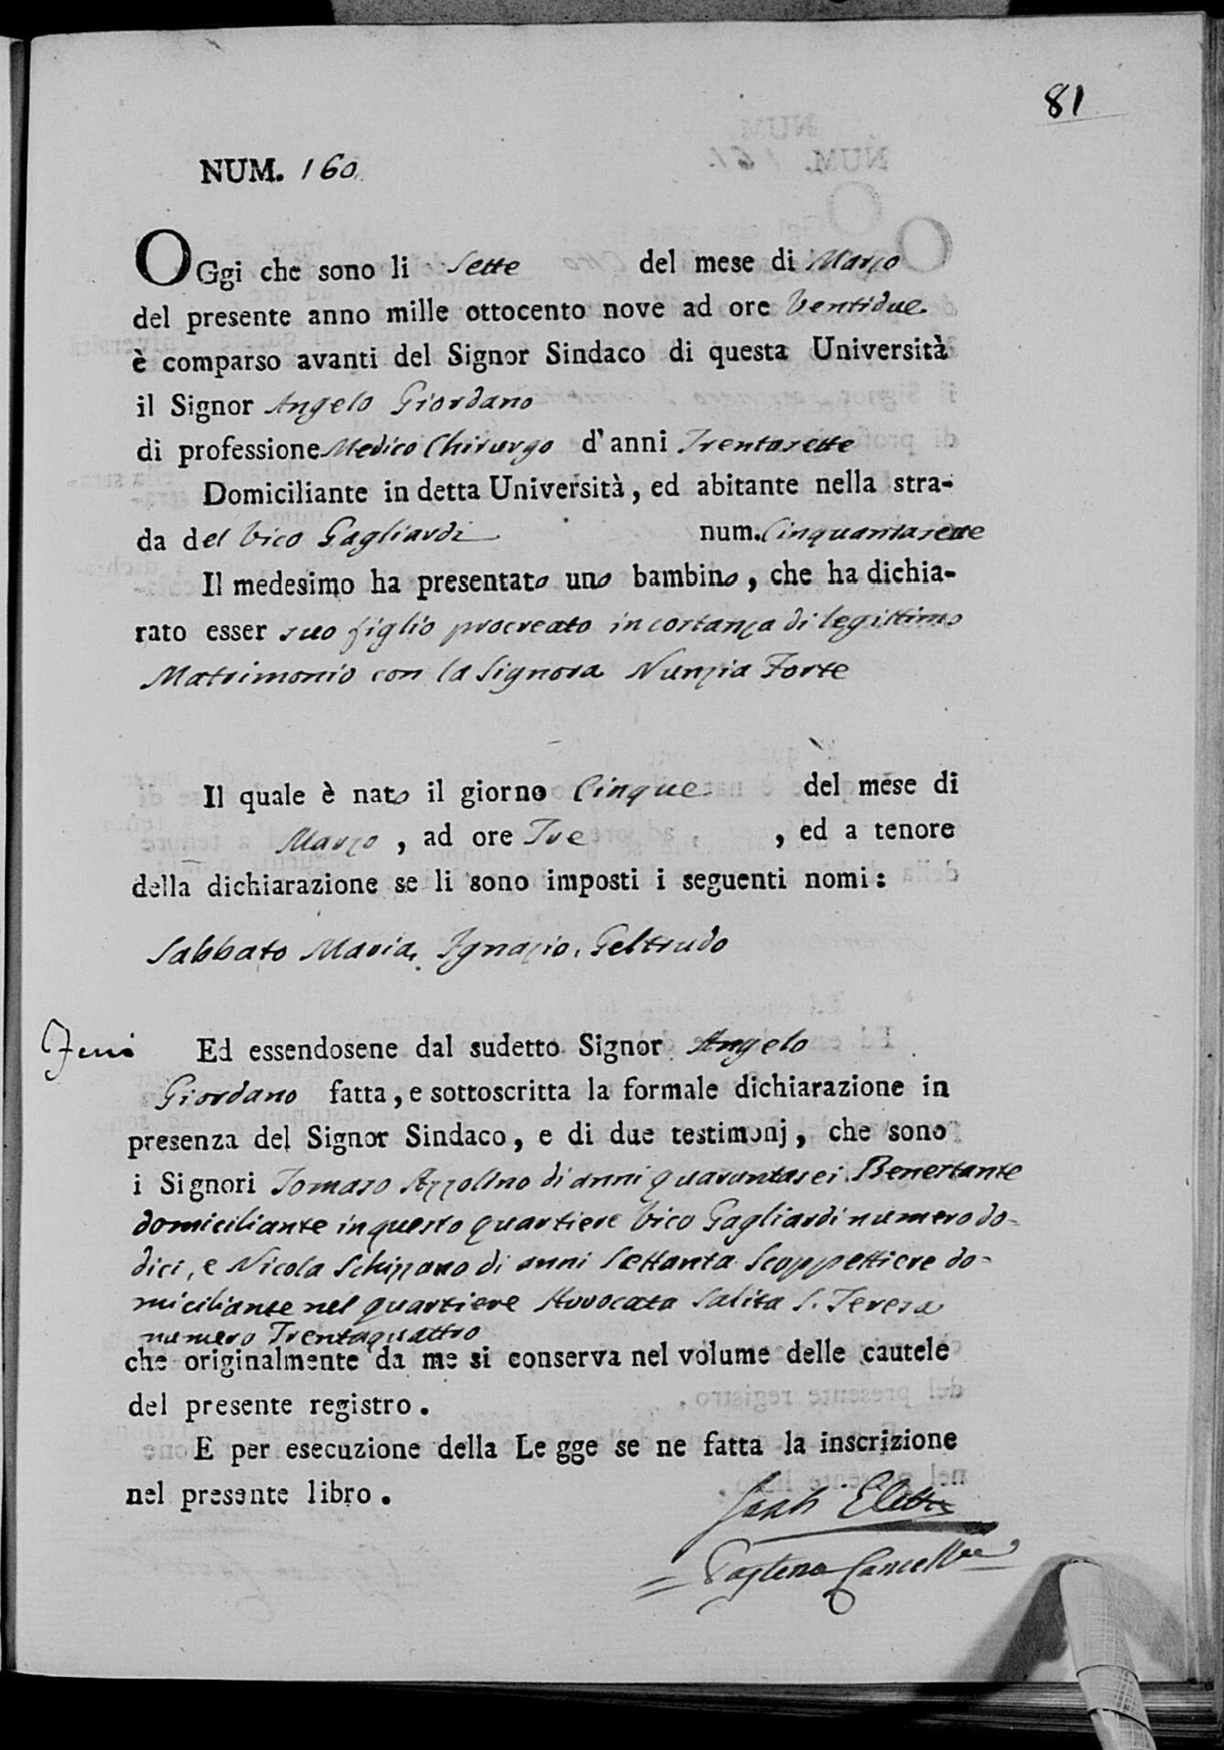 81
NUM. 160
OGgi che sono li Sette del mese di Marzo
del presente anno mille ottocento nove ad ore Ventidue
è comparso avanti del Signor Sindaco di questa Università
il Signor Angelo Giordano
di professione Medico Chirurgo d'anni Trentasette
Domiciliante in detta Università, ed abitante nella stra-
da del Vico Gagliardi num. Cinquantasette
Il medesimo ha presentato uno bambino, che ha dichia-
rato esser suo figlio procreato in costanza di legittimo
Matrimonio con la Signora Nunzia Forte
Il quale è nato il giorno Cinque del mese di
Marzo, ad ore Tre, ed a tenore
della dichiarazione se li sono imposti i seguenti nomi:
Sabbato Maria, Ignazio, Geltrudo
Ed essendosene dal sudetto Signor Angelo
Giordano fatta, e sottoscritta la formale dichiarazione in
presenza del Signor Sindaco, e di due testimonj, che sono
i Signori Tomaso Azzolino di anni quarantasei Benestante
domiciliante in questo quartiere Vico Gagliardi numero do-
dici, e Nicola Schizzano di anni Settanta Scoppettiere do-
miciliante nel quartiere Avvocata Salita S. Teresa
numero Trentaquattro
che originalmente da me si conserva nel volume delle cautele
del presente registro.
E per esecuzione della Legge se ne fatta la inscrizione
nel presente libro.
Eletto